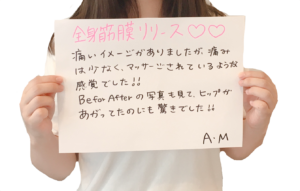 全身筋膜リリース♡♡
痛いイメージがありましたが、痛み
は少なく、マッサージされているような
感覚でした!!
Befor Afterの写真も見て、ヒップが
あがってたのにも驚きでした!!
A.M